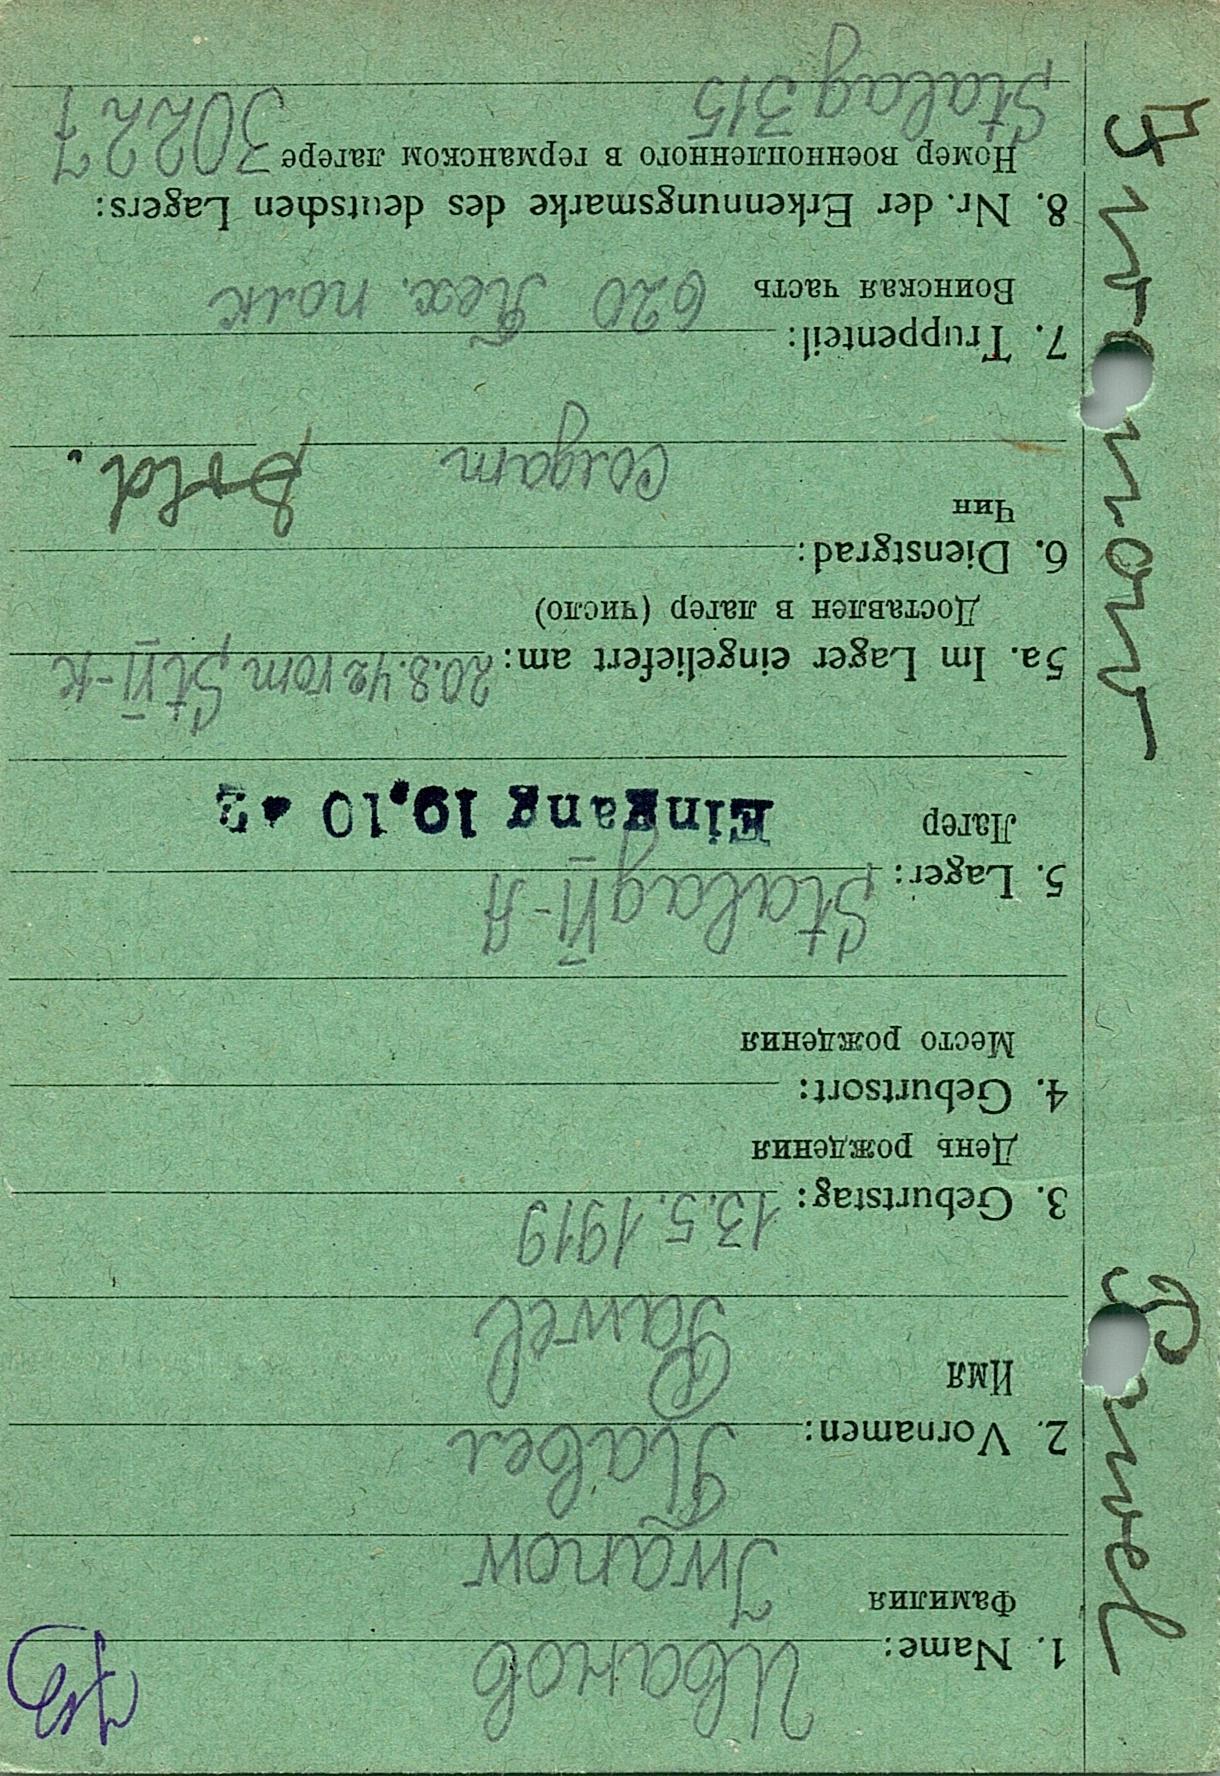 1. Name: Иванов
Фамилия
Iwanow
2. Vornamen: Павел
Имя
Pawel
3. Geburtstag: 13.5.1919
День рождения
4. Geburtsort:
Место рождения
5. Lager: Stalag VI-A
Лагер
Eingang 19.10.42
5a. Im Lager eingeliefert am: 20.8.42 vom St VI-K
Доставлен в лагер (число)
6. Dienstgrad:
Чин
солдат Sold.
7. Truppenteil:
Воинская часть 620 Пех. полк
8. Nr. der Erkennungsmarke des deutschen Lagers:
Номер военнопленного в германском лагере 30227
Stalag 315
Pawel Iwanow